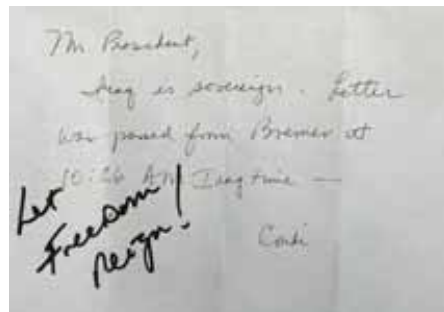 Mr. President,
Iraq is sovereign. Letter
was passed from Bremer at
10:26 AM Iraq time —
Condi
Let
Freedom
Reign!